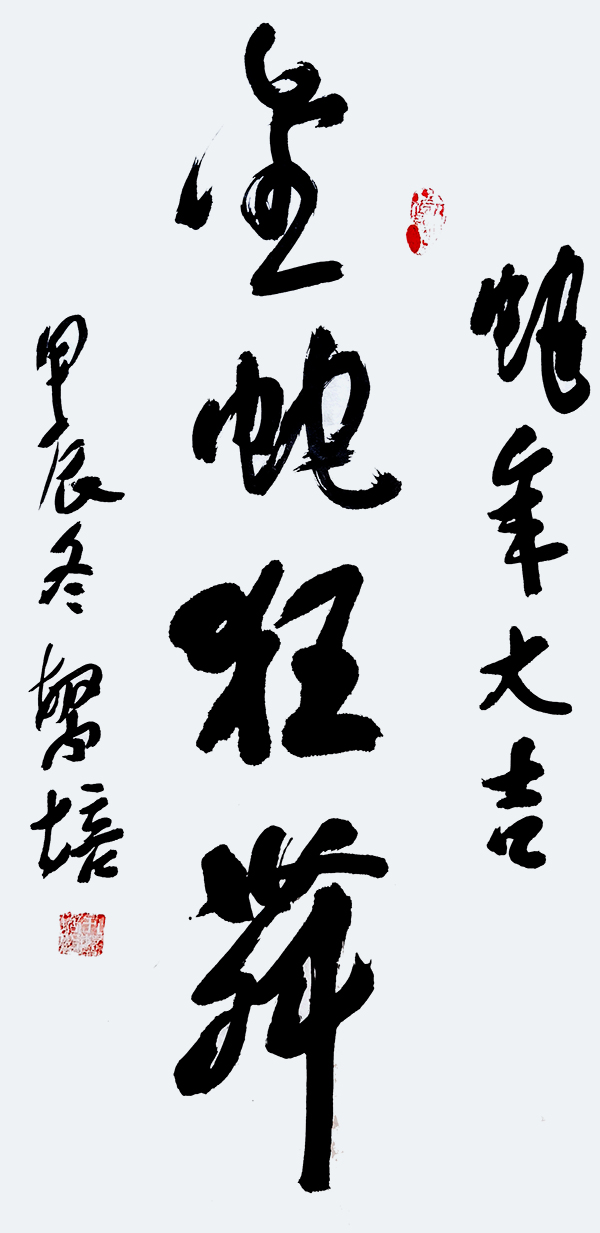 蛇年大吉
金蛇狂舞
甲辰冬
培